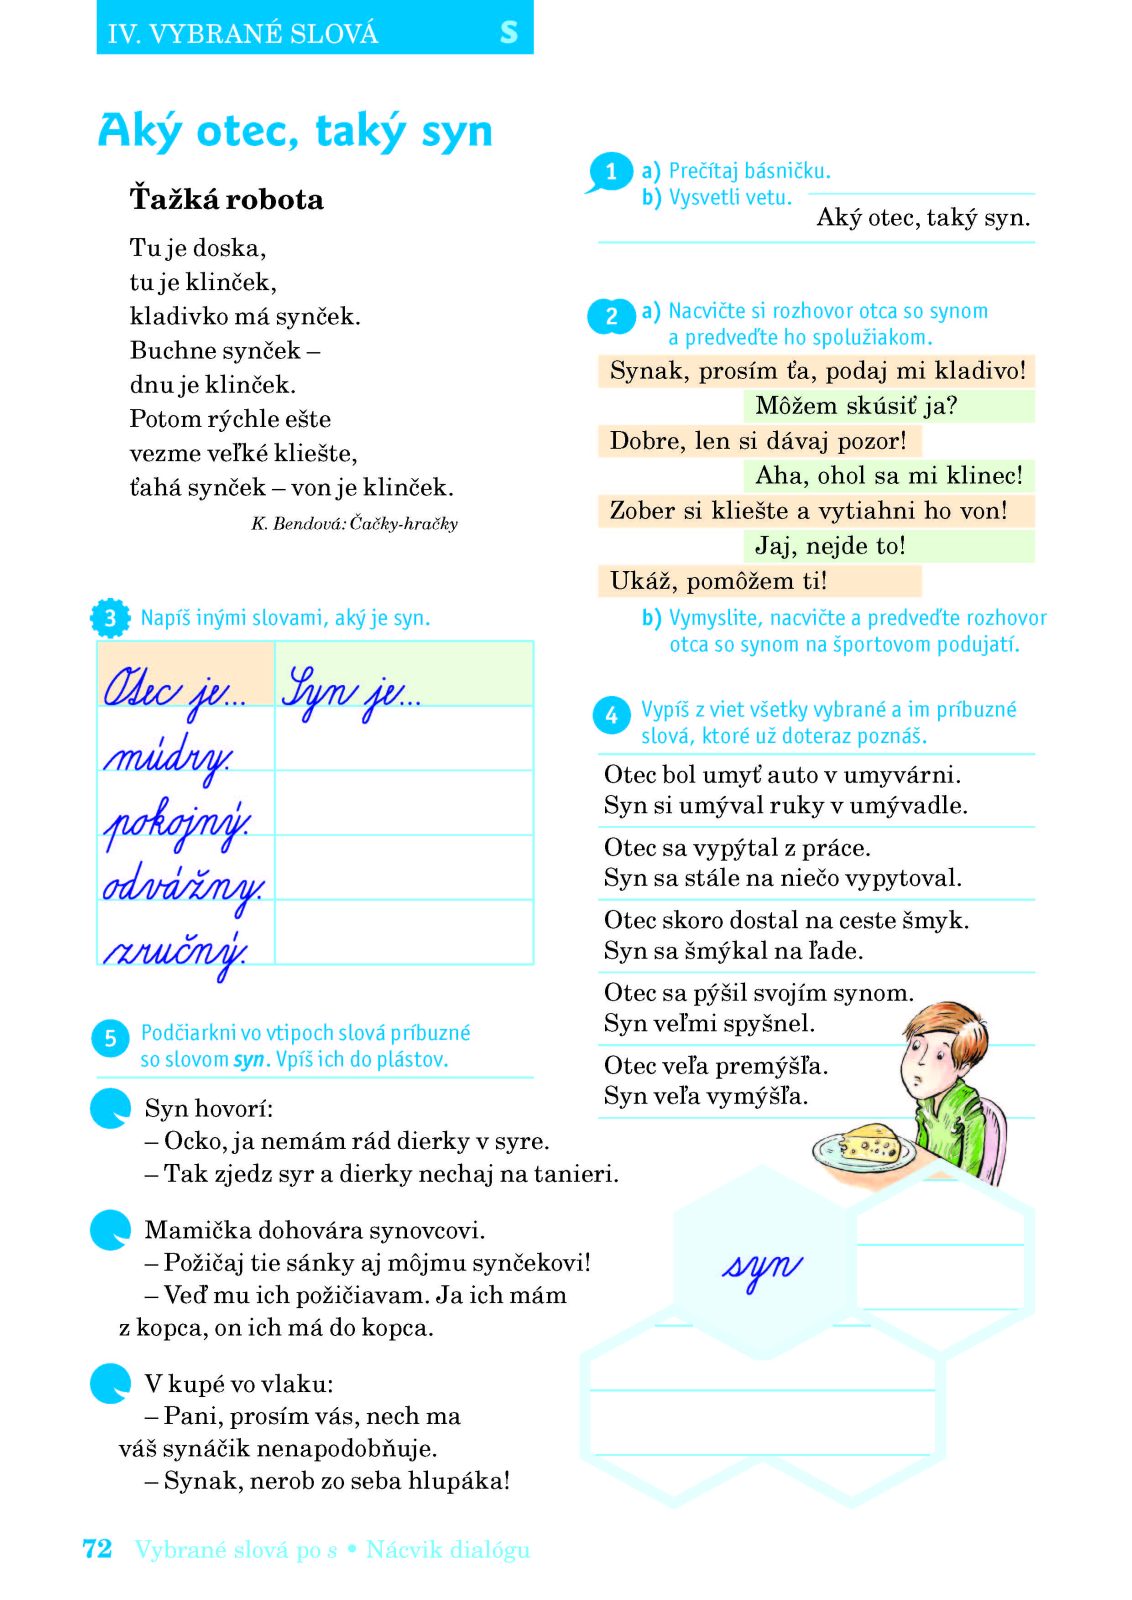 IV. VYBRANÉ SLOVÁ S
Aký otec, taký syn
Ťažká robota
Tu je doska,
tu je klinček,
kladivko má synček.
Buchne synček –
dnu je klinček.
Potom rýchle ešte
vezme veľké kliešte,
ťahá synček – von je klinček.
K. Bendová: Čačky-hračky
1 a) Prečítaj básničku.
b) Vysvetli vetu.
Aký otec, taký syn.
2 a) Nacvičte si rozhovor otca so synom
a predveďte ho spolužiakom.
Synak, prosím ťa, podaj mi kladivo!
Môžem skúsiť ja?
Dobre, len si dávaj pozor!
Aha, ohol sa mi klinec!
Zober si kliešte a vytiahni ho von!
Jaj, nejde to!
Ukáž, pomôžem ti!
b) Vymyslite, nacvičte a predveďte rozhovor
otca so synom na športovom podujatí.
3 Napíš inými slovami, aký je syn.
Otec je... Syn je...
múdry.
pokojný.
odvážny.
zručný.
4 Vypíš z viet všetky vybrané a im príbuzné
slová, ktoré už doteraz poznáš.
Otec bol umyť auto v umyvárni.
Syn si umýval ruky v umývadle.
Otec sa vypýtal z práce.
Syn sa stále na niečo vypytoval.
Otec skoro dostal na ceste šmyk.
Syn sa šmýkal na ľade.
Otec sa pýšil svojím synom.
Syn veľmi spyšnel.
Otec veľa premýšľa.
Syn veľa vymýšľa.
5 Podčiarkni vo vtipoch slová príbuzné
so slovom syn. Vpíš ich do plástov.
Syn hovorí:
– Ocko, ja nemám rád dierky v syre.
– Tak zjedz syr a dierky nechaj na tanieri.
Mamička dohovára synovcovi.
– Požičaj tie sánky aj môjmu synčekovi!
– Veď mu ich požičiavam. Ja ich mám
z kopca, on ich má do kopca.
V kupé vo vlaku:
– Pani, prosím vás, nech ma
váš synáčik nenapodobňuje.
– Synak, nerob zo seba hlupáka!
syn
72 Vybrané slová po s • Nácvik dialógu